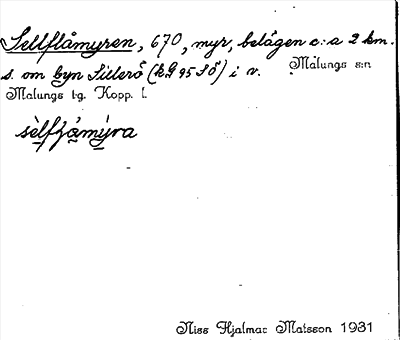 Sellflåmyren, 670, myr, belägen c:a 2 km.
s. om byn Sillerö (kg 95 SÖ) i v. Malungs s:n
Malungs tg. Kopp. l.
sèlfzåmýra
Niss Hjalmar Matsson 1931